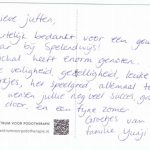 ieve juffen,
rtelijk bedankt voor een geu
aar bij Speelendwijs!
chal heeft enorm genoten.
e veiligheid, gezelligheid, leuke
es, het speelgoed, allemaal t
wensen jullie nog veel succes
door en een fijne zome
Groetjes van
familie
CENTRUM VOOR PODOTHERAPIE